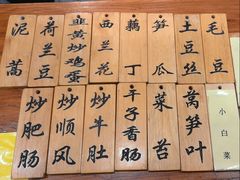 泥蒿
荷兰豆
韭黄炒鸡蛋
西兰花
藕丁
笋瓜
土豆丝
毛豆
炒肥肠
炒顺风
炒牛肚
平子香肠
菜苔
莴笋叶
小白菜